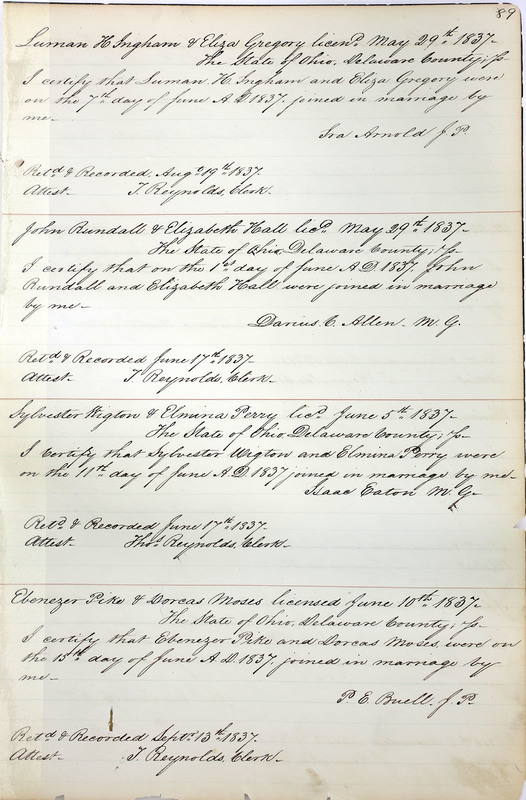 89
Luman H. Ingham & Eliza Gregory licend. May 29th 1837-
The State of Ohio, Delaware County; Ss-
I certify that Luman H. Ingham and Eliza Gregory were
on the 7th day of June A.D. 1837. joined in marriage by
me-
Ira Arnold J.P.
Retd & Recorded. Augt 19th 1837.
Attest- T. Reynolds, Clerk-
John Rundall & Elizabeth Hall licd. May 29th 1837-
The State of Ohio, Delaware County; Ss-
I certify that on the 1st day of June A.D. 1837. John
Rundall and Elizabeth Hall were joined in marriage
by me-
Darius C. Allen. M.G.
Retd & Recorded June 17th 1837-
Attest- T Reynolds, Clerk-
Sylvester Wigton & Elmina Perry licd. June 5th 1837-
The State of Ohio, Delaware County; Ss-
I certify that Sylvester Wigton and Elmina Perry were
on the 11th day of June A.D. 1837 joined in marriage by me-
Isaac Eaton M.G-
Retd & Recorded June 17th 1837-
Attest- Thos Reynolds, Clerk-
Ebenezer Pike & Dorcas Moses licensed June 10th 1837-
The State of Ohio, Delaware County; Ss-
I certify that Ebenezer Pike and Dorcas Moses, were on
the 15th day of June A.D. 1837. joined in marriage by
me-
P. E. Buell. J.P.
Retd & Recorded Septr. 13th 1837.
Attest- T. Reynolds, Clerk-